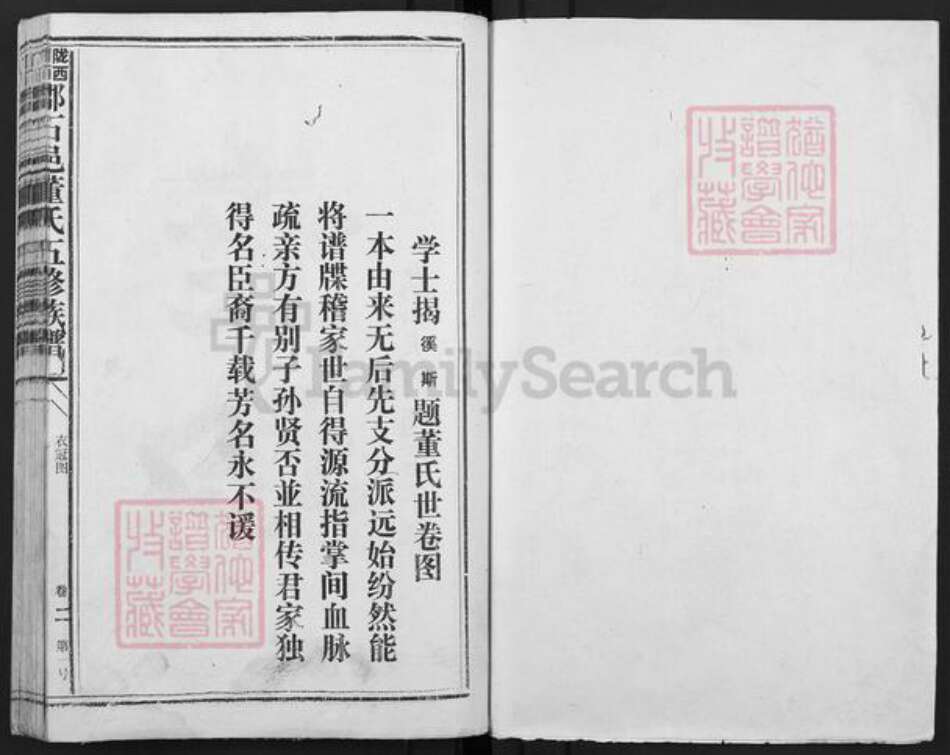 学士揭徯斯题董氏世卷图
一本由来无后先支分派远始纷然能
将谱牒稽家世自得源流指掌间血脉
疏亲方有别子孙贤否並相传君家独
得名臣裔千载芳名永不谖
陇西
邑董氏五修族谱
衣冠图
卷二
第一号
FamilySearch
谱学会
收藏
谱学会
收藏